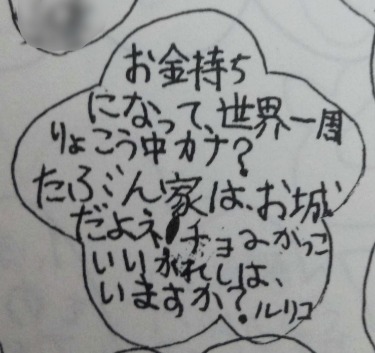 お金持ち
になって、世界一周
りょこう中カナ?
たぶん家は、お城
だよネ!チョみかっこ
いいかれしは、
いますか?ルリコ